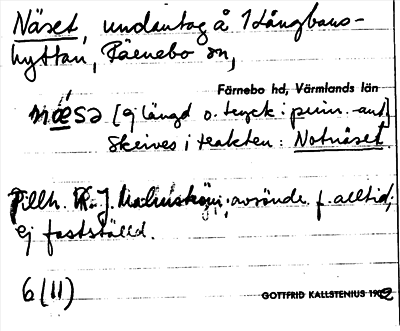 Näset, undantag å 1 Långbans-
hyttan, Färnebo sn,
Färnebo hd, Värmlands län
næsə [ej längd o. tryck: pum. ant]
Skrives i trakten: Notnäset
Tillh. K. J. Malmsköjn; avsönde f. alltid;
ej fastställd.
6 (11)
GOTTFRID KALLSTENIUS 1902